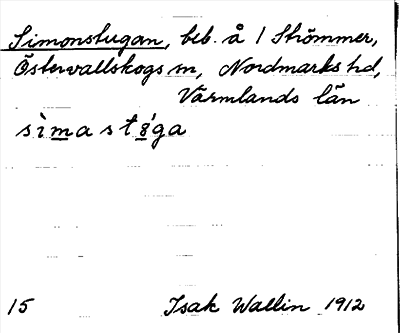 Simonstugan, beb. å 1 Strömmer,
Östervallskogs sn, Nordmarks hd,
Värmlands län
15 Isak Wallin 1912